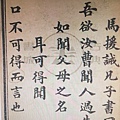 馬援誡兄子書曰
吾欲汝曹聞人過失
如聞父母之名
耳可得聞
口不可得而言也